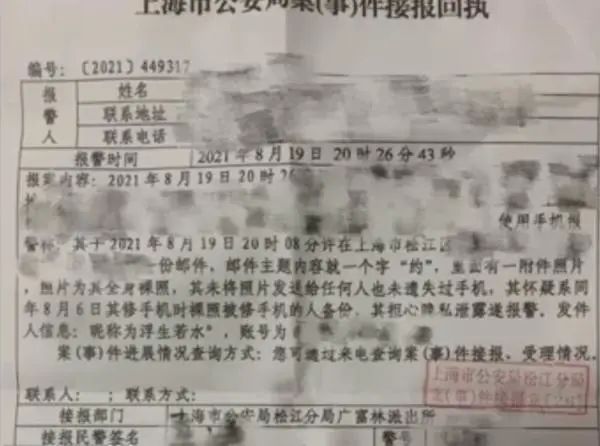 上海市公安局案(事)件接报回执
编号：〔2021〕449317
报警人
姓名
联系地址
联系电话
报警时间 2021年8月19日 20时26分43秒
报案内容：2021年8月19日20时26
使用手机报
警称：其于2021年8月19日20时08分许在上海市松江区
一份邮件，邮件主题内容就一个字“约”，里面有一附件照片
，照片为其全身裸照，其未将照片发送给任何人也未遗失过手机，其怀疑系同
年8月6日其修手机时裸照被修手机的人备份，其担心隐私泄露遂报警，发件
人信息：昵称为浮生若水，账号为
案(事)件进展情况查询方式：您可通过来电查询案(事)件接报、受理情况。
上海市公安局松江分局
联系人： 联系方式：
接报部门 上海市公安局松江分局广富林派出所
接报民警签名